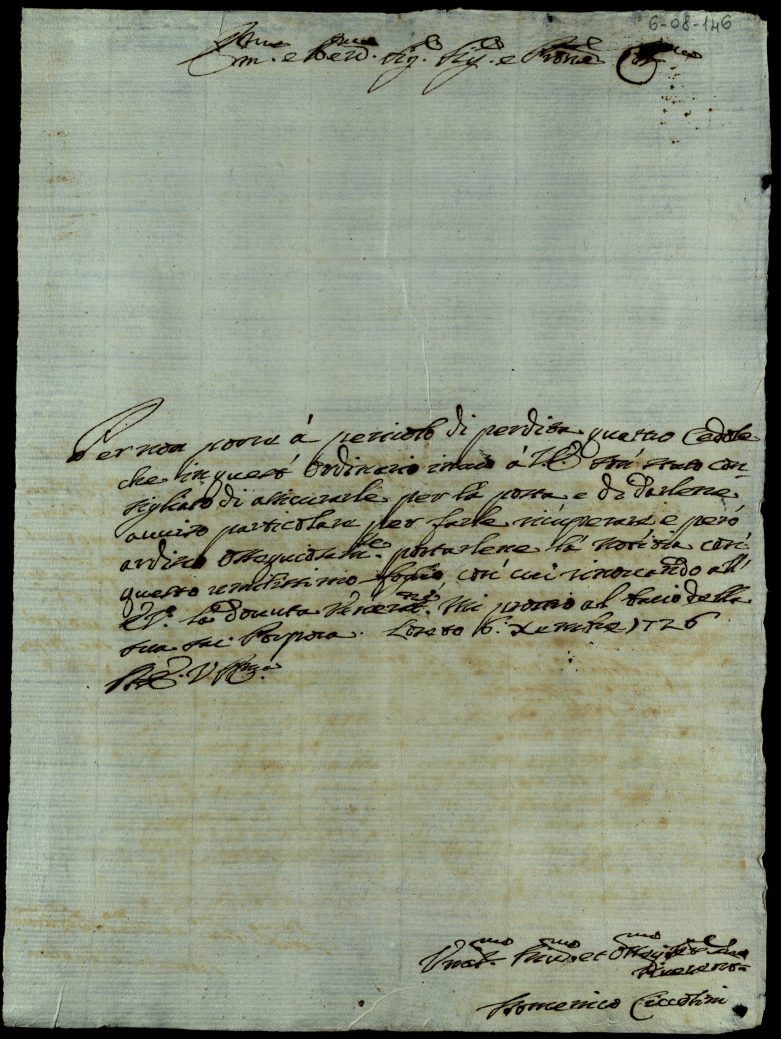 6-08-146
Em.mo e Rev.mo Sig.r Sig.r e Prone
Per non porre à pericolo di perdita quattro Cedole
che in quest' Ordinario invio à V.E. son stato con-
sigliato di assicurarle per la posta e di darlene
avviso particolare per farle ricuperare e però
ardisco Ossequiosam.te portarlene la notitia con
questo umilissimo foglio, con cui rinovando all'
E.V. la dovuta Venerat.ne mi prostro al bacio della
sua sac. Porpora. Loreto 6. Xembre 1726
D. V. Em.za
Um.mo Dev.mo et Oss.mo
Domenico Ceccolini